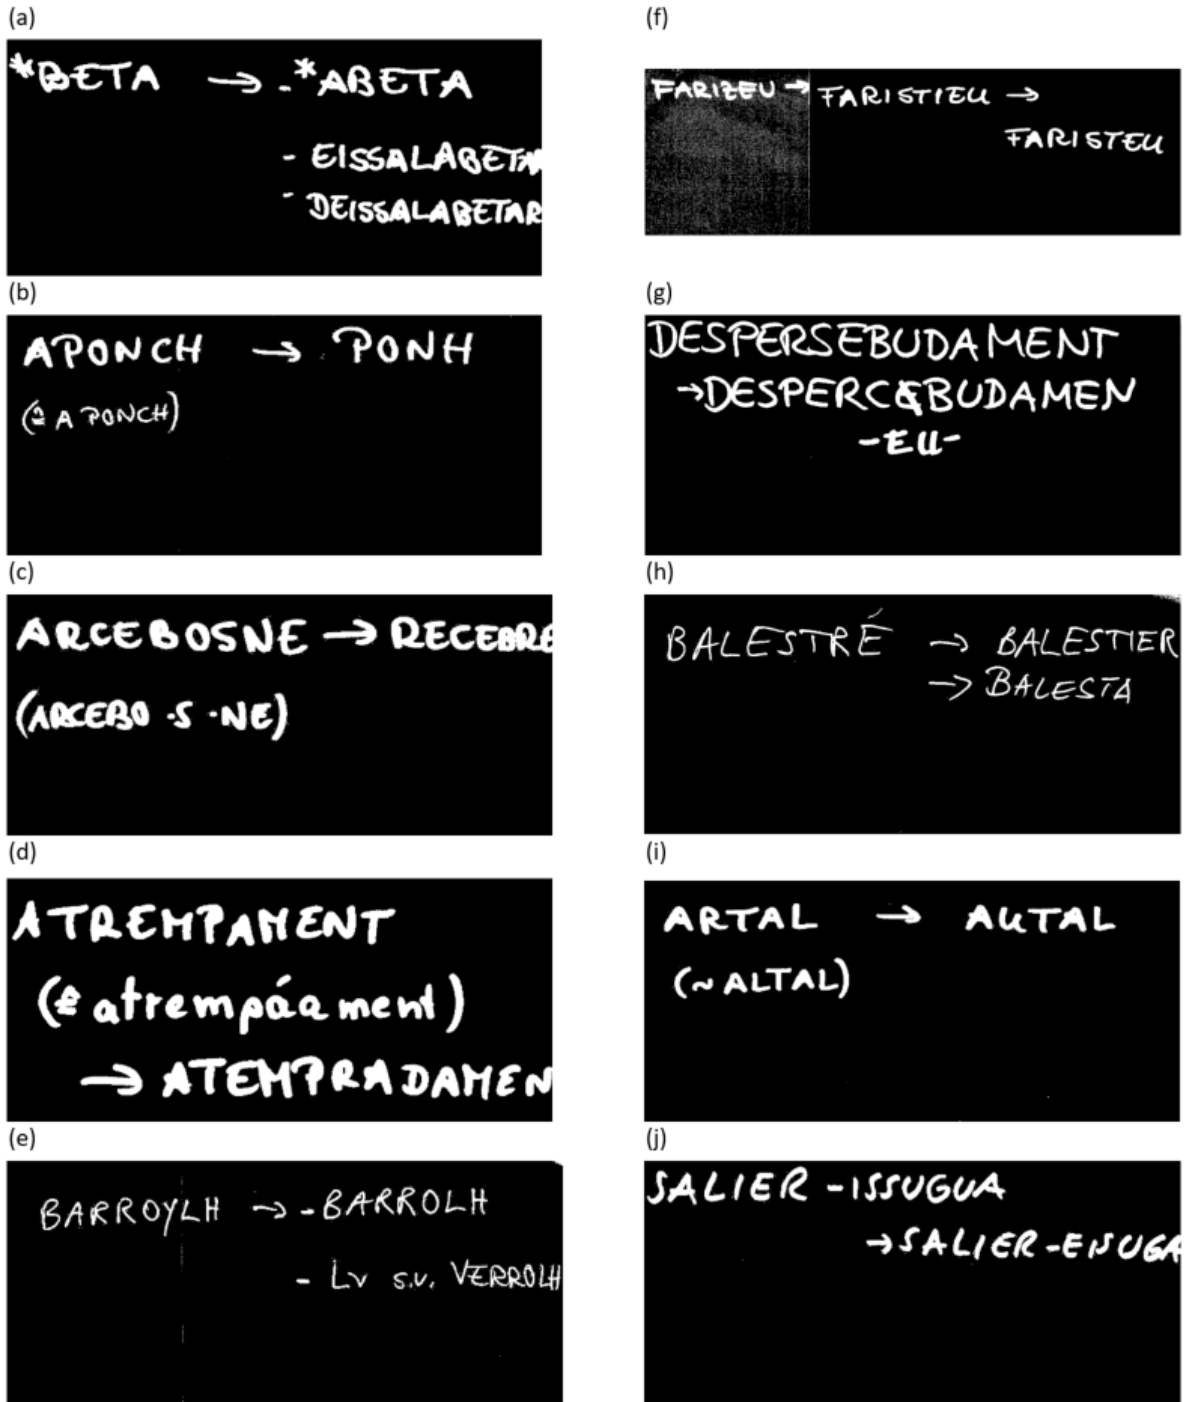 (a)
*BETA → - *ABETA
- EISSALABETAR
- DEISSALABETAR
(b)
APONCH → PONH
(= A PONCH)
(c)
ARCEBOSNE → RECEBRE
(ARCEBO ·S ·NE)
(d)
ATREMPAMENT
(= atrempáament)
→ ATEMPRADAMEN
(e)
BARROYLH → - BARROLH
- Lv s.v. VERROLH
(f)
FARIZEU → FARISTIEU →
FARISTEU
(g)
DESPERSEBUDAMENT
→ DESPERCEBUDAMEN
-EU-
(h)
BALESTRÉ → BALESTIER
→ BALESTA
(i)
ARTAL → AUTAL
(~ ALTAL)
(j)
SALIER-ISSUGUA
→ SALIER-EISUGA